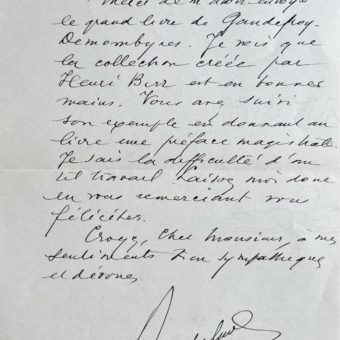 Merci de m'avoir envoyé
le grand livre de Gaudefroy-
Demombynes. Je vois que
la collection créée par
Henri Berr est en bonnes
mains. Vous avez suivi
son exemple en donnant au
livre une préface magistrale.
Je sais la difficulté d'un
tel travail. Laissez moi donc
en vous remerciant vous
féliciter.
Croyez, cher Monsieur, à mes
sentiments bien sympathiques
et dévoués